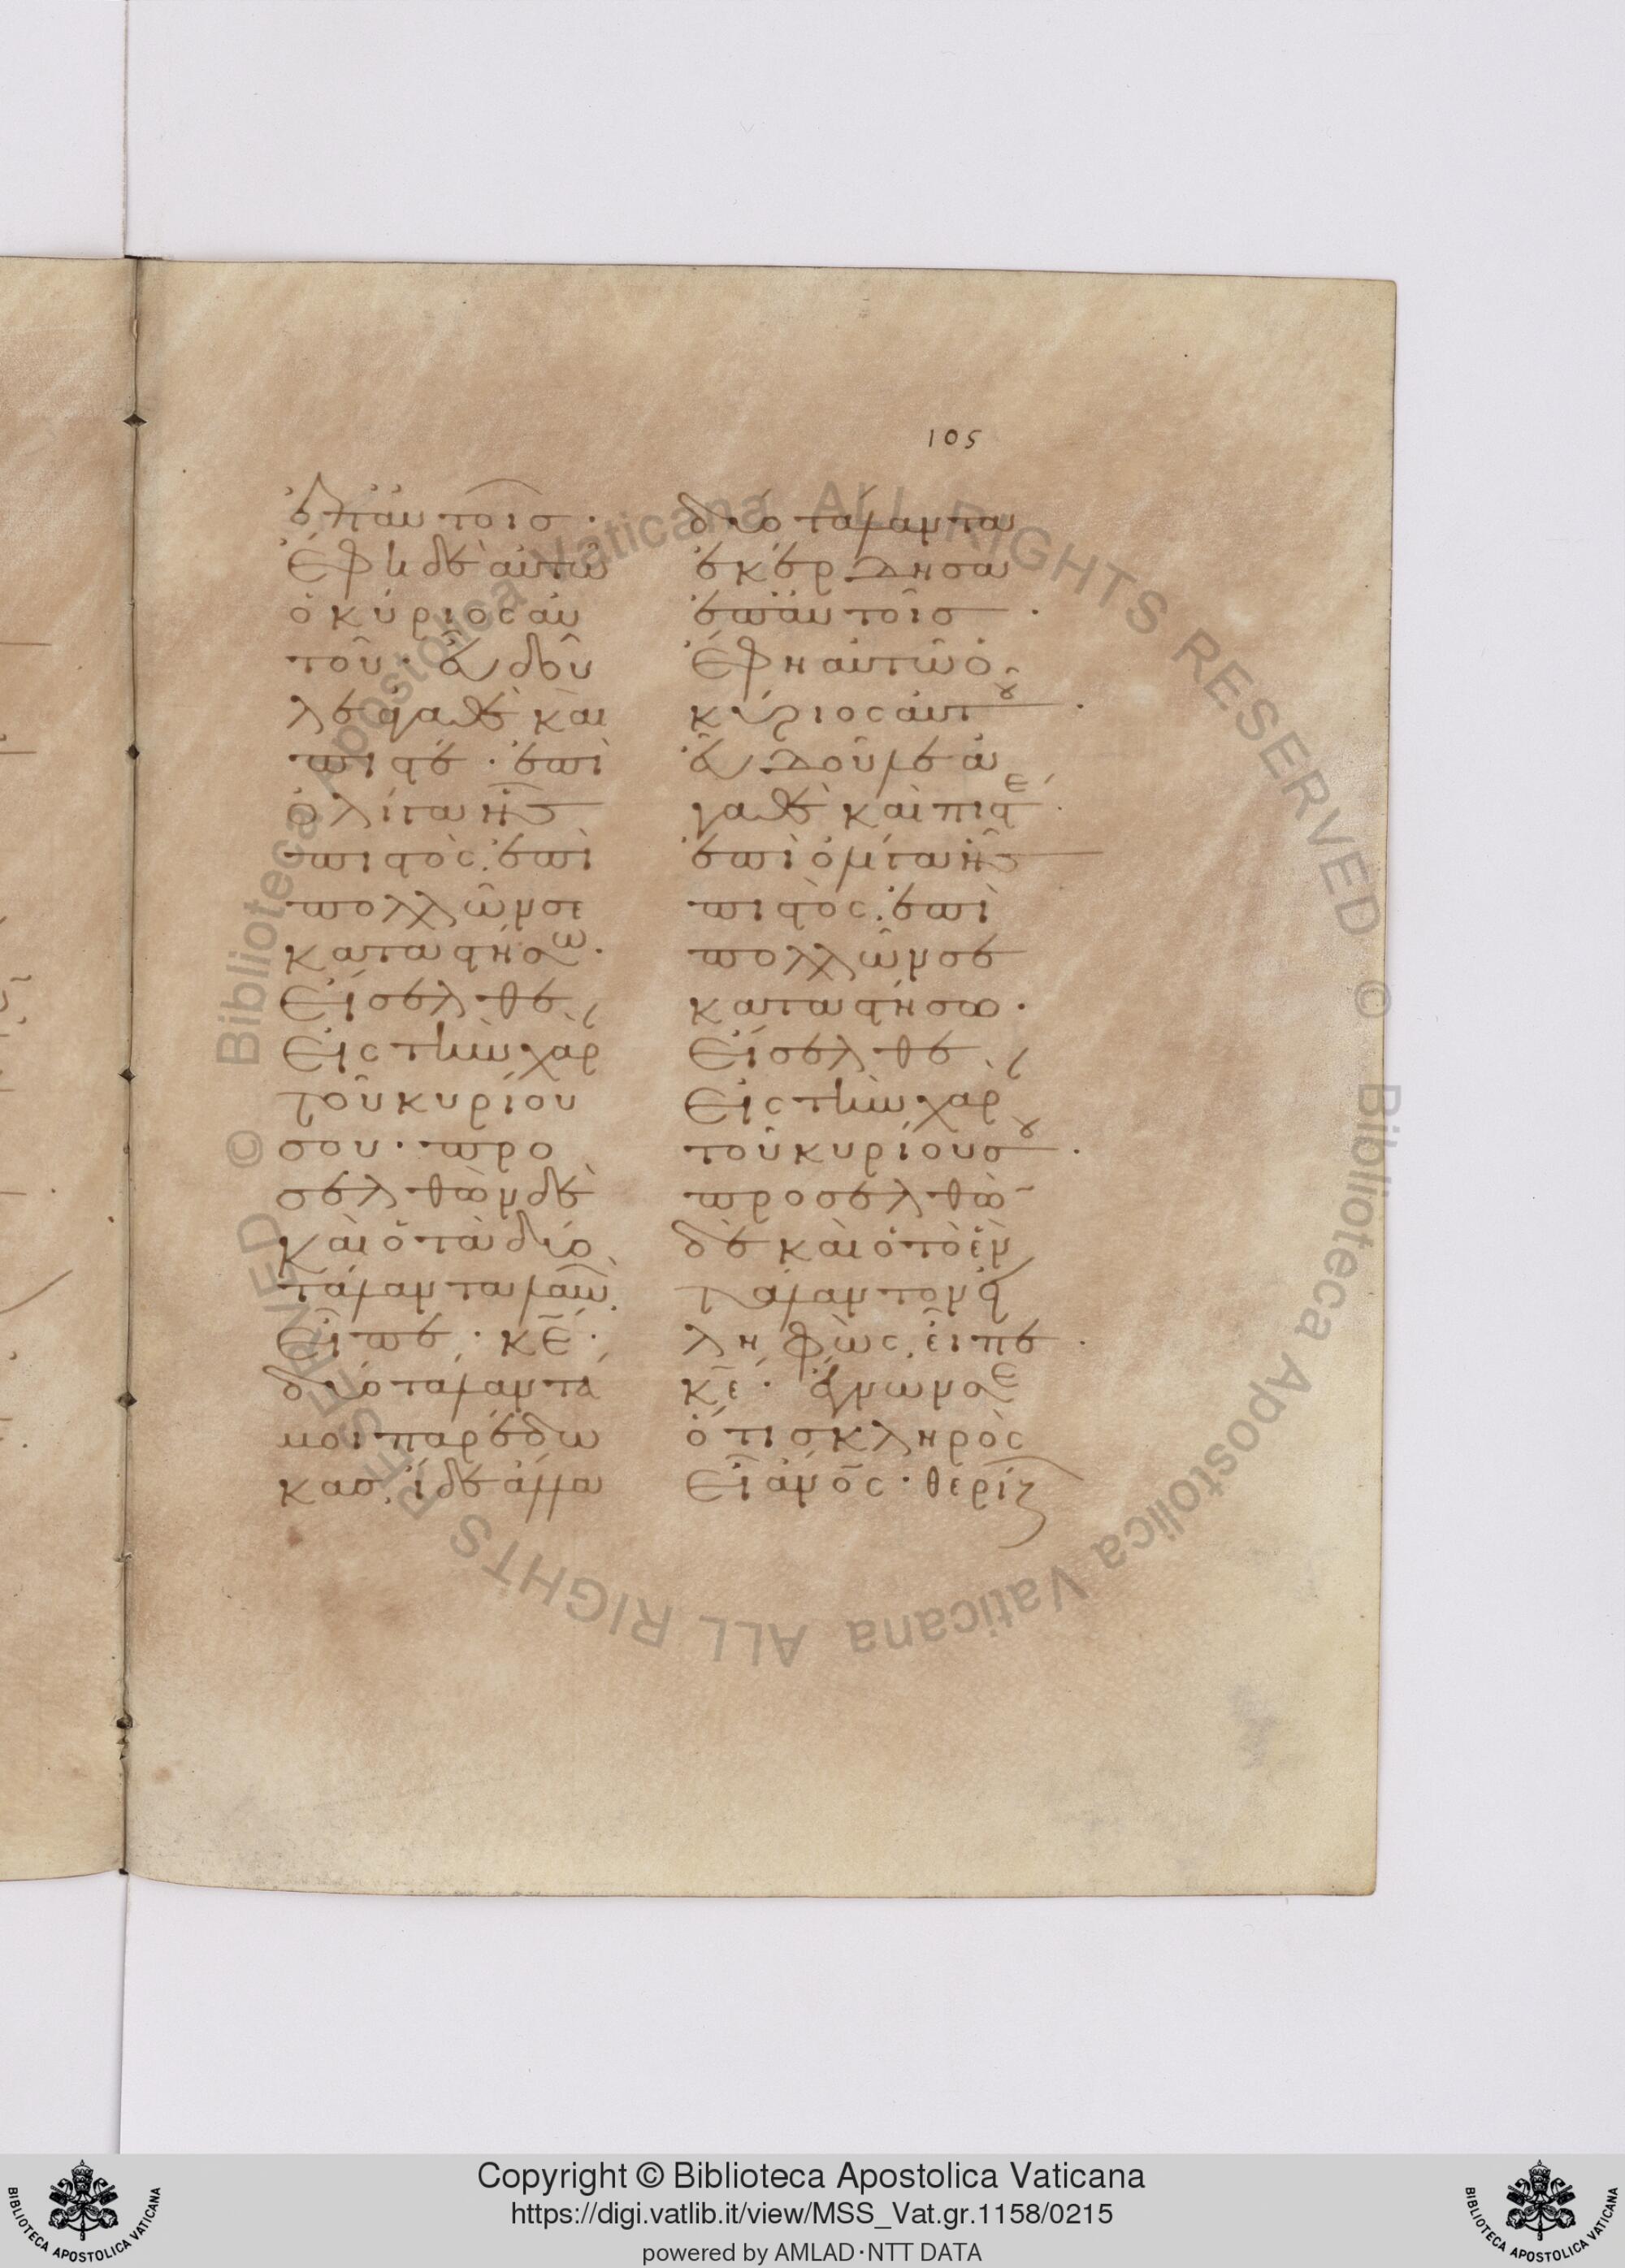 105
ἐπ' αὐτοῖς·
Ἔφη δὲ αὐτῶ
ὁ κύριος αὐ
τοῦ· εὖ δοῦ
λε ἀγαθὲ καὶ
πιστέ· ἐπὶ
ὀλίγα ἦς
πιστός· ἐπὶ
πολλῶν σε
καταστήσω·
Εἴσελθε
Εἰς τὴν χαρ
τοῦ κυρίου
σου· προ
σελθὼν δὲ
καὶ ὁ τὰ δύο
τάλαντα λαβὼ
Εἶπε· κ̅ε̅·
δύο τάλαντά
μοι παρέδω
κας· ἴδε ἄλλα
δύο τάλαντα
ἐκέρδησα
ἐπ' αὐτοῖς·
Ἔφη αὐτῶ ὁ
κύριος αὐτου·
εὖ δοῦλε ἀ
γαθὲ καὶ πιστέ·
ἐπὶ ὀλίγα ἦς
πιστὸς· ἐπὶ
πολλῶν σε
καταστήσω·
Εἴσελθε
Εἰς τὴν χαρ
τοῦ κυρίου σου·
προσελθὼ
δὲ καὶ ὁ τὸ ἓν
τάλαντον εἰ
ληφὼς, εἶπε·
κ̅ε̅· ἔγνων σε
ὅτι σκληρὸς
Εἶ ἄνο̅ς· θερίζ
Copyright © Biblioteca Apostolica Vaticana
https://digi.vatlib.it/view/MSS_Vat.gr.1158/0215
powered by AMLAD·NTT DATA
BIBLIOTECA APOSTOLICA VATICANA
BIBLIOTECA APOSTOLICA VATICANA
© Biblioteca Apostolica Vaticana ALL RIGHTS RESERVED
© Biblioteca Apostolica Vaticana ALL RIGHTS RESERVED